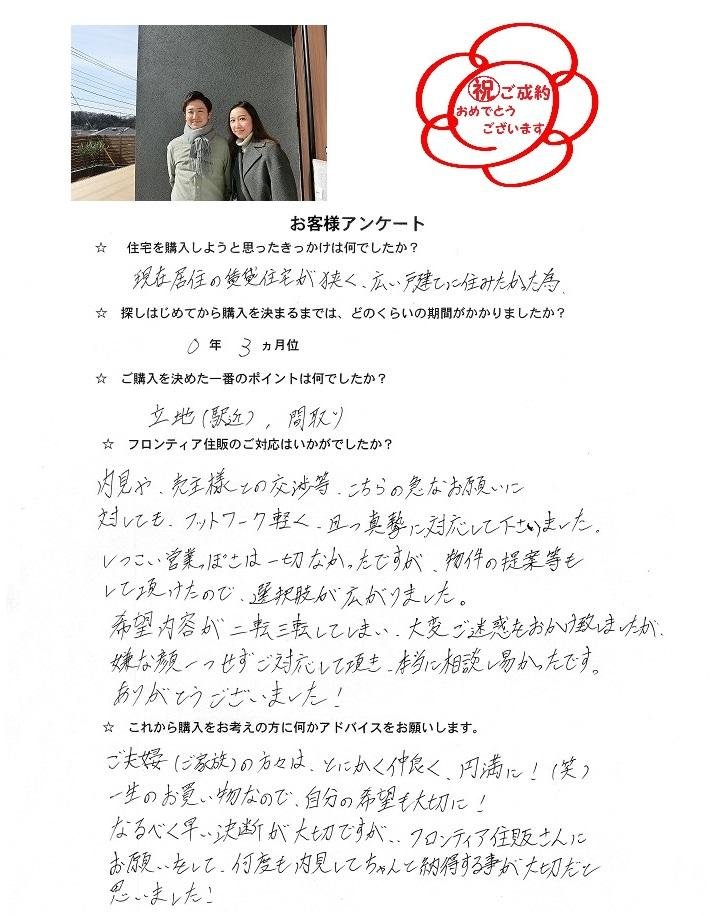 ㊗ご成約
おめでとう
ございます
お客様アンケート
☆ 住宅を購入しようと思ったきっかけは何でしたか？
現在居住の賃貸住宅が狭く、広い戸建てに住みたかった為、
☆ 探しはじめてから購入を決まるまでは、どのくらいの期間がかかりましたか？
0 年 3 ヵ月位
☆ ご購入を決めた一番のポイントは何でしたか？
立地(駅近)，間取り
☆ フロンティア住販のご対応はいかがでしたか？
内見や、売主様との交渉等、こちらの急なお願いに
対しても、フットワーク軽く、且つ真摯に対応して下さいました。
しつこい営業っぽさは一切なかったですが、物件の提案等も
して頂けたので、選択肢が広がりました。
希望内容が二転三転してしまい、大変ご迷惑をおかけ致しましたが、
嫌な顔一つせずご対応して頂き、本当に相談し易かったです。
ありがとうございました！
☆ これから購入をお考えの方に何かアドバイスをお願いします。
ご夫婦(ご家族)の方々は、とにかく仲良く、円満に！(笑)
一生のお買い物なので、自分の希望も大切に！
なるべく早い決断が大切ですが、、フロンティア住販さんに
お願いをして、何度も内見してちゃんと納得する事が大切だと
思いました！